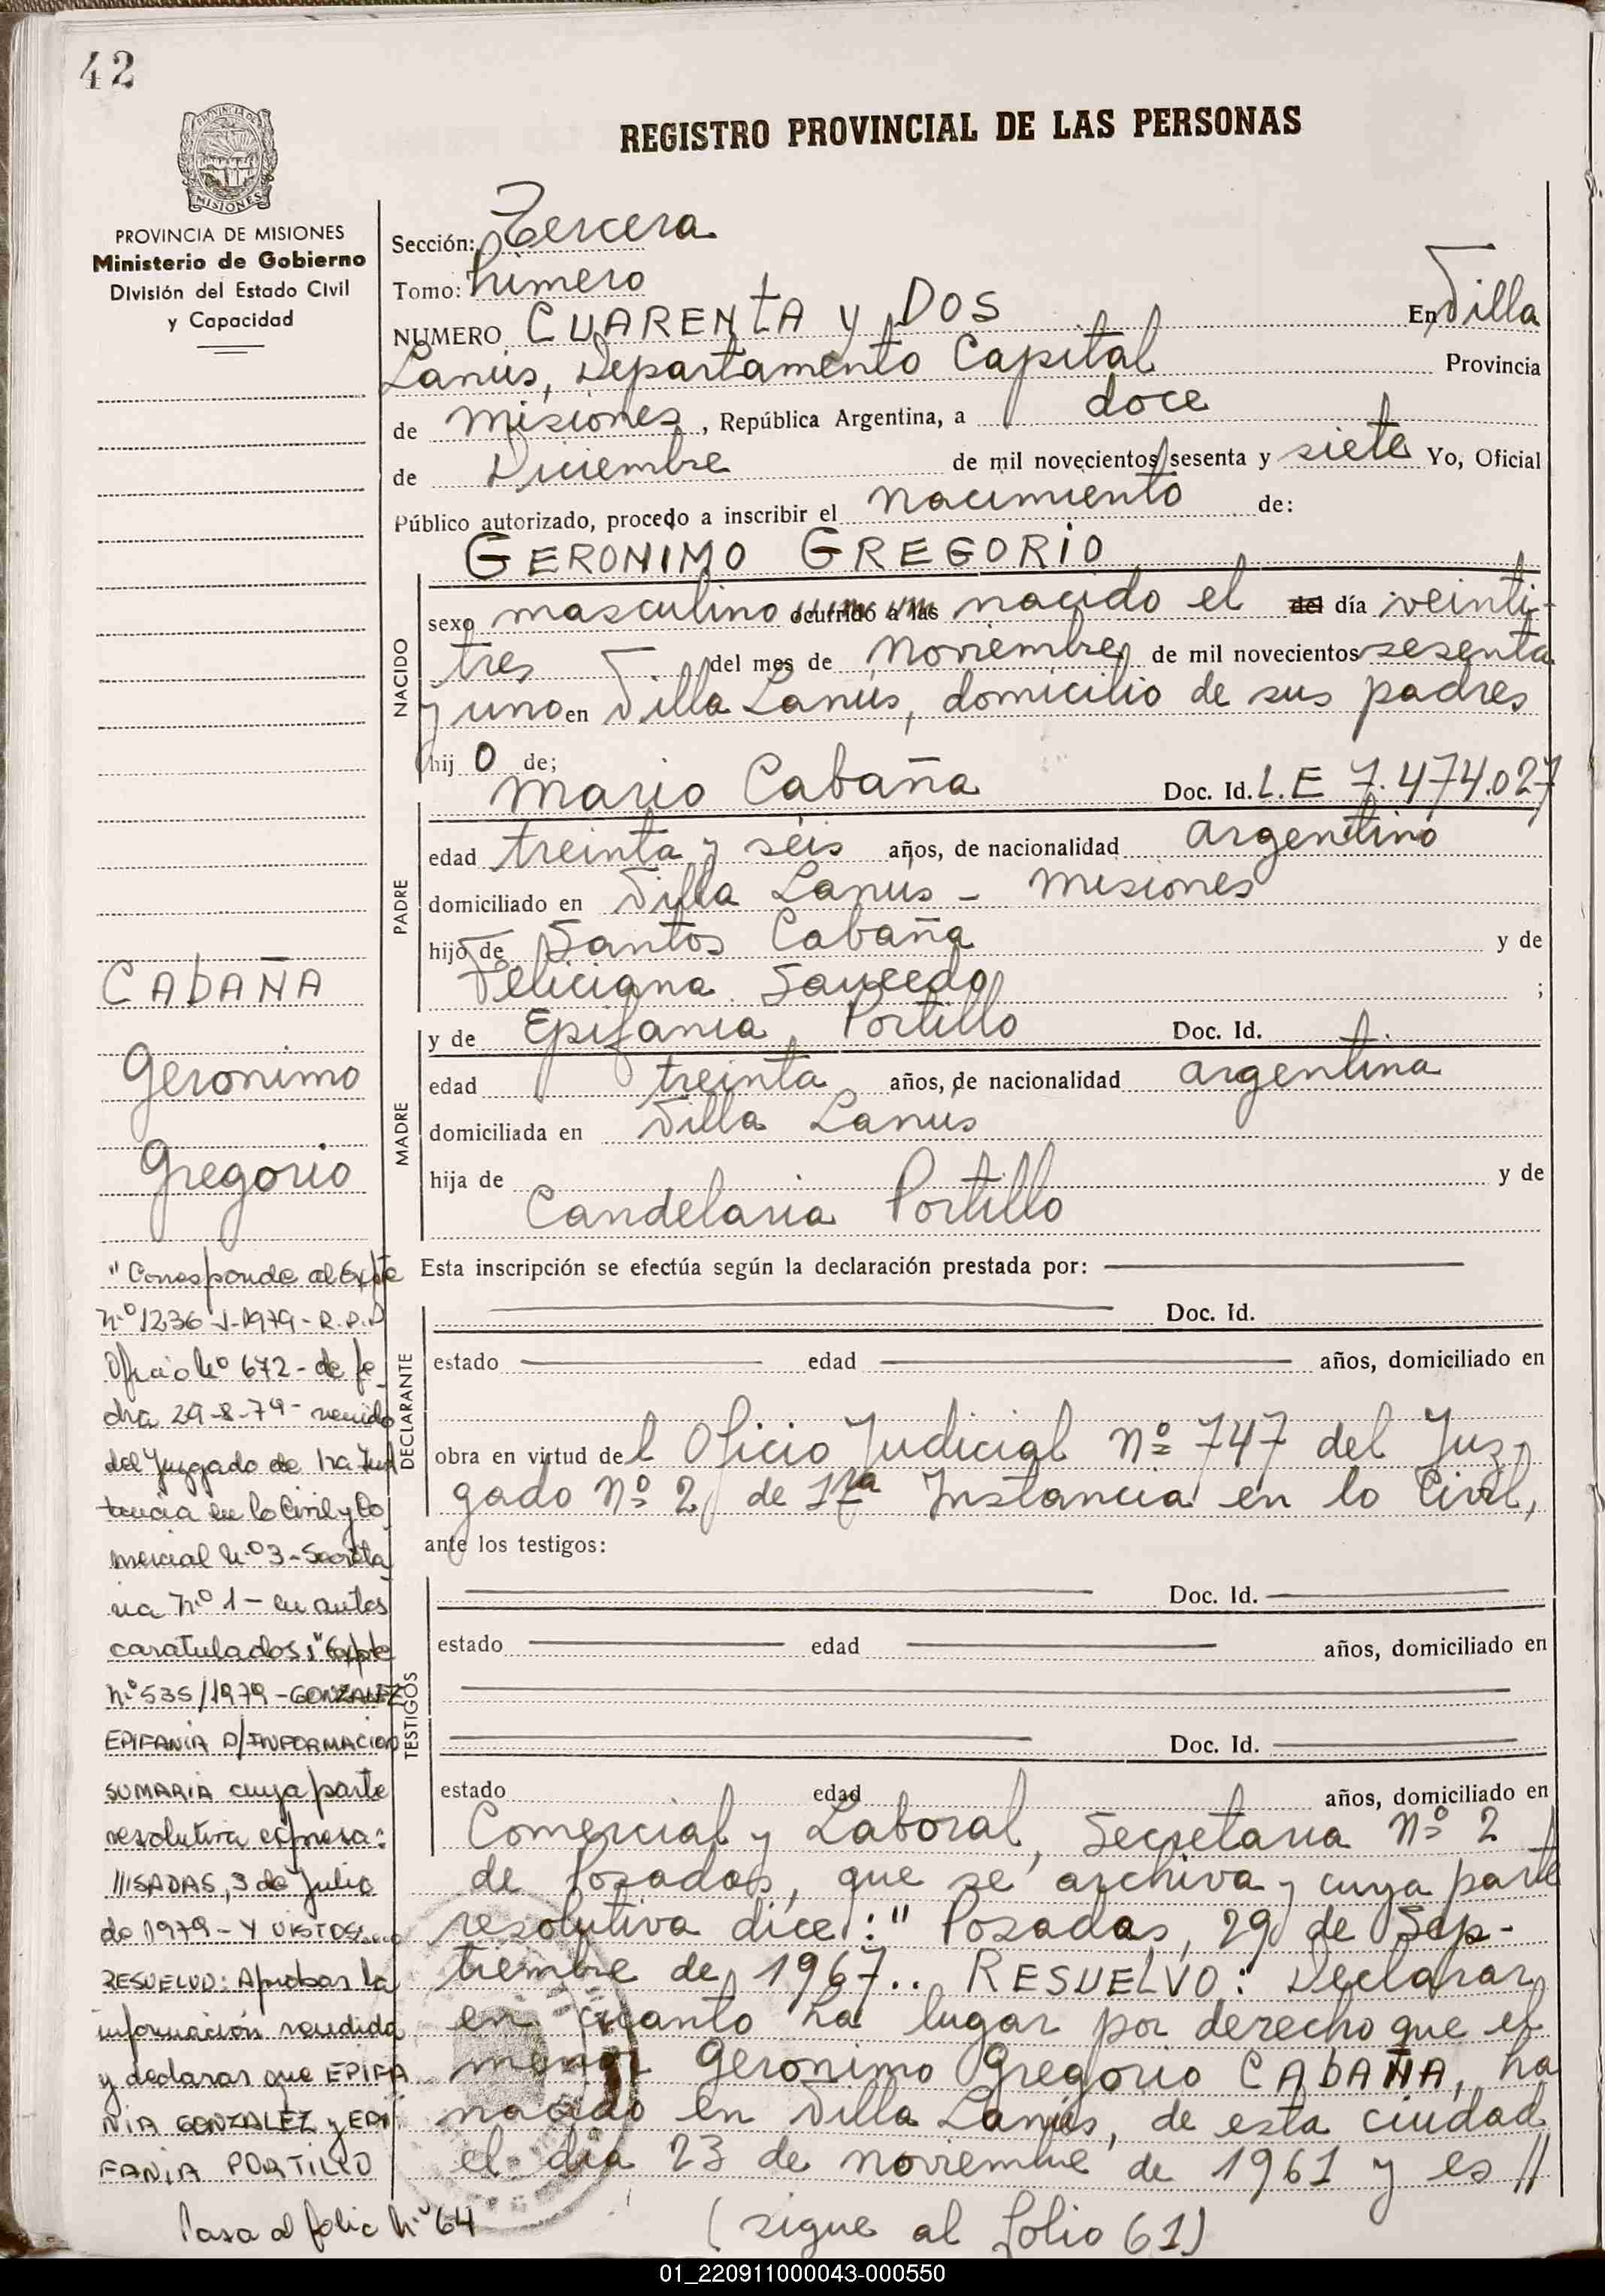 42
PROVINCIA DE MISIONES
MISIONES
PROVINCIA DE MISIONES
Ministerio de Gobierno
División del Estado Civil
y Capacidad
REGISTRO PROVINCIAL DE LAS PERSONAS
Sección: Tercera
Tomo: Primero
NUMERO CUARENTA y DOS En Villa
Lanús, Departamento Capital Provincia
de Misiones, República Argentina, a doce
de Diciembre de mil novecientos sesenta y siete Yo, Oficial
Público autorizado, procedo a inscribir el nacimiento de:
GERONIMO GREGORIO
NACIDO
sexo masculino ocurrido a las nacido el del día veinti-
tres del mes de Noviembre de mil novecientos sesenta
y uno en Villa Lanús, domicilio de sus padres
hijo de:
Mario Cabaña Doc. Id. L.E 7.474.027
PADRE
edad treinta y seis años, de nacionalidad argentino
domiciliado en Villa Lanus - Misiones
hijo de Santos Cabaña y de
Feliciana Saucedo ;
y de Epifania Portillo Doc. Id.
MADRE
edad treinta años, de nacionalidad argentina
domiciliada en Villa Lanus
hija de y de
Candelaria Portillo
Esta inscripción se efectúa según la declaración prestada por:
Doc. Id.
DECLARANTE
estado edad años, domiciliado en
obra en virtud del Oficio Judicial Nº 747 del Juz-
gado Nº 2 de 1ra Instancia en lo Civil,
ante los testigos:
TESTIGOS
Doc. Id.
estado edad años, domiciliado en
Doc. Id.
estado edad años, domiciliado en
Comercial y Laboral, Secretaria Nº 2
de Posadas, que se archiva y cuya parte
resolutiva dice: " Posadas, 29 de Sep-
tiembre de 1967.. RESUELVO: Declarar
en cuanto ha lugar por derecho que el
menor Geronimo Gregorio CABAÑA, ha
nacido en Villa Lanús, de esta ciudad
el día 23 de noviembre de 1961 y es //
(sigue al folio 61)
CABAÑA
Geronimo
Gregorio
"Corresponde al Expte
Nº 1236-J-1979-R.P.P
Oficio Nº 672 - de fe-
cha 29-8-79 - venido
del Juzgado de 1ra Ins
tancia en lo Civil y Co
mercial Nº 3 - Secreta
ria Nº 1 - en autos
caratulados: "Expte
Nº 535/1979 - GONZALEZ
EPIFANIA S/INFORMACION
SUMARIA cuya parte
resolutiva expresa:
///SADAS, 3 de Julio
de 1979 - Y VISTOS:...
RESUELVO: Aprobar la
información rendida
y declarar que EPIFA
NIA GONZALEZ y EPI
FANIA PORTILLO
Pasa al folio Nº 64
01_220911000043-000550